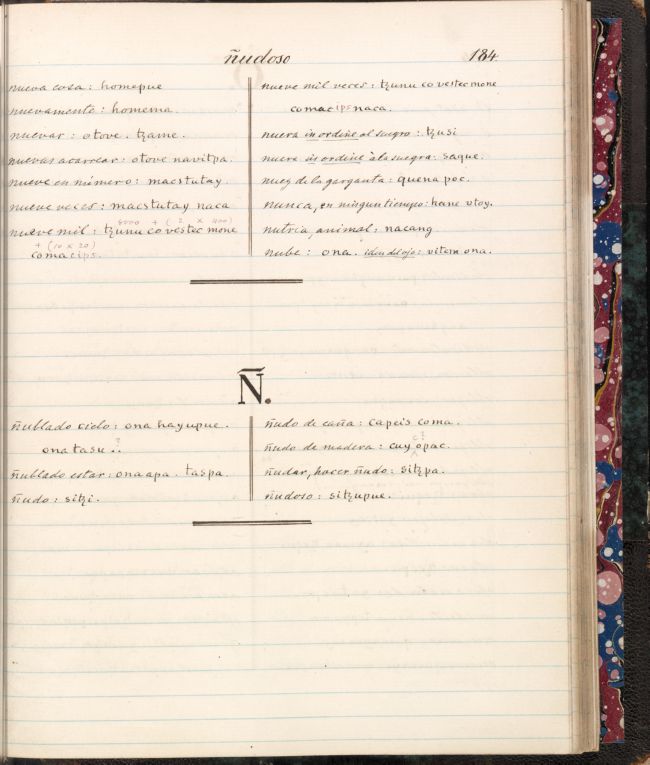 ñudoso 184
nueva cosa : homepue
nuevamente : homema.
nuevar : otove . tzame.
nuevas acarrear : otove navitpa.
nueve en número : macstutay.
nueve veces : macstutay naca
8000 + ( 2 x 400)
nueve mil : tzunu co vestec mone
+ (10 x 20)
comacips.
nueve mil veces : tzunu co vestec mone
comacipsnaca.
nuera in ordine al suegro : tzusi
nuere in ordine à la suegra : saque.
nuez de la garganta : quena poc.
nunca, en ningun tiempo : hane otoy.
nutria, animal : nacang
nube : ona . idem del ojo : vitom ona.
Ñ.
ñublado cielo : ona hayupue.
?
ona tasu ..
ñublado estar : ona apa . taspa.
ñudo : sitzi.
ñudo de caña : capeis coma.
c?
ñudo de madera : cuy opac.
ñudar, hacer ñudo : sitzpa.
ñudoso : sitzupue.